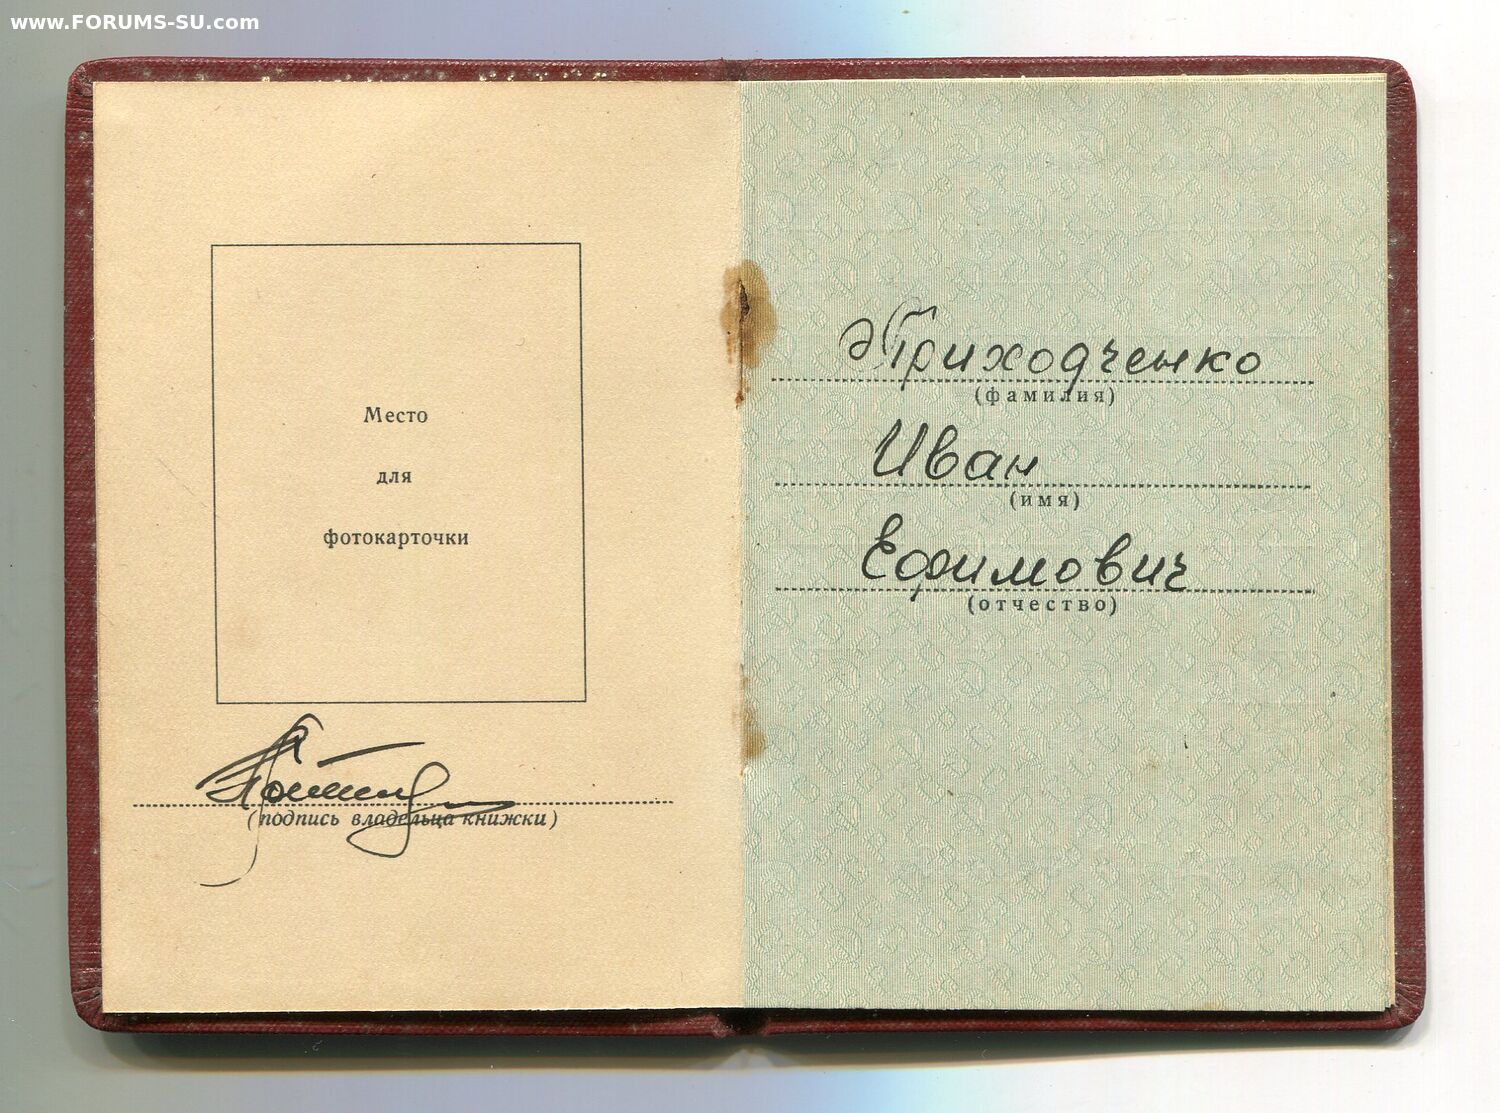 www.FORUMS-SU.com
Место
для
фотокарточки
(подпись владельца книжки)
Приходченко
(фамилия)
Иван
(имя)
Ефимович
(отчество)